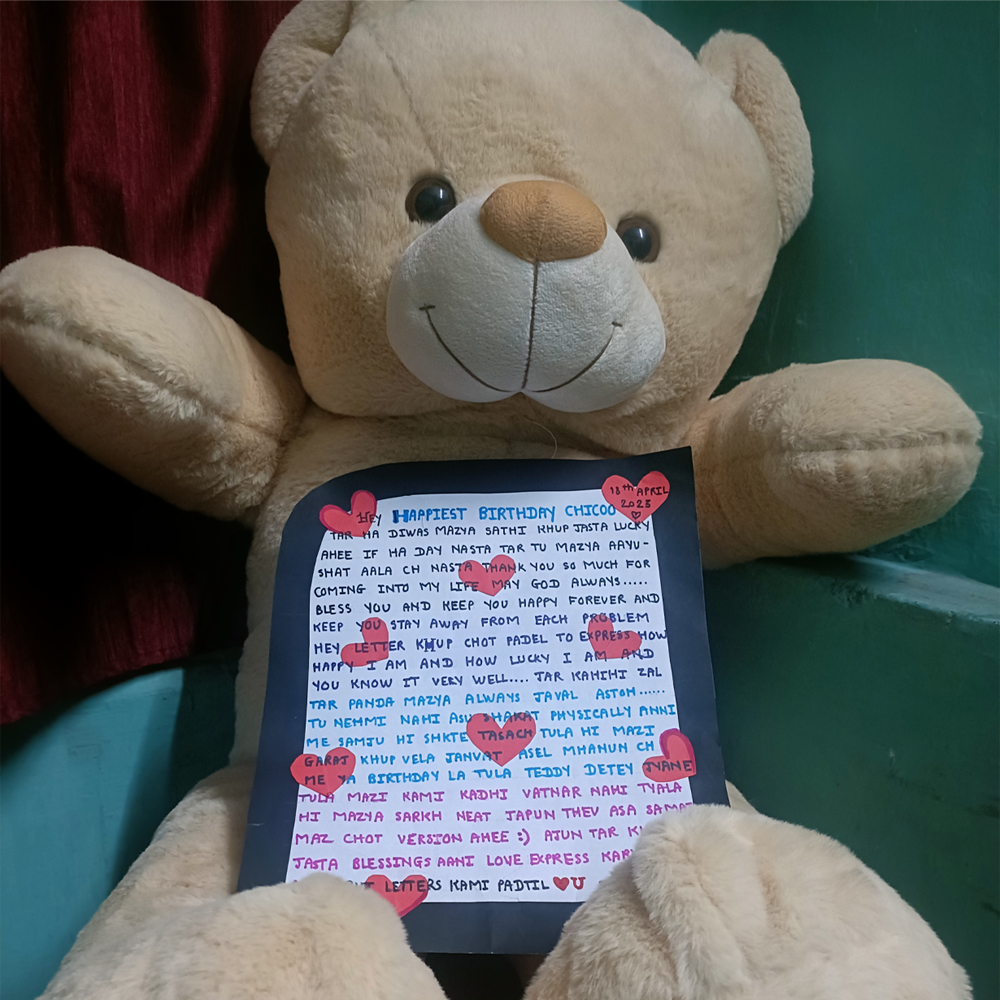 18th APRIL
2025
HEY HAPPIEST BIRTHDAY CHICOO
TAR HA DIWAS MAZYA SATHI KHUP JASTA LUCKY
AHEE IF HA DAY NASTA TAR TU MAZYA AAYU-
SHAT AALA CH NASTA THANK YOU SO MUCH FOR
COMING INTO MY LIFE MAY GOD ALWAYS.....
BLESS YOU AND KEEP YOU HAPPY FOREVER AND
KEEP YOU STAY AWAY FROM EACH PROBLEM
HEY LETTER KHUP CHOT PADEL TO EXPRESS HOW
HAPPY I AM AND HOW LUCKY I AM AND
YOU KNOW IT VERY WELL.... TAR KAHIHI ZAL
TAR PANDA MAZYA ALWAYS JAVAL ASTOH......
TU NEHMI NAHI ASU SHAKAT PHYSICALLY ANNI
ME SAMJU HI SHKTE TASACH TULA HI MAZI
GARAJ KHUP VELA JANVAT ASEL MHANUN CH
ME YA BIRTHDAY LA TULA TEDDY DETEY JYANE
TULA MAZI KAMI KADHI VATNAR NAHI TYALA
HI MAZYA SARKH NEAT JAPUN THEV ASA SAMAJ
MAZ CHOT VERSION AHEE :) AJUN TAR
JASTA BLESSINGS AANI LOVE EXPRESS
LETTERS KAMI PADTIL ❤U